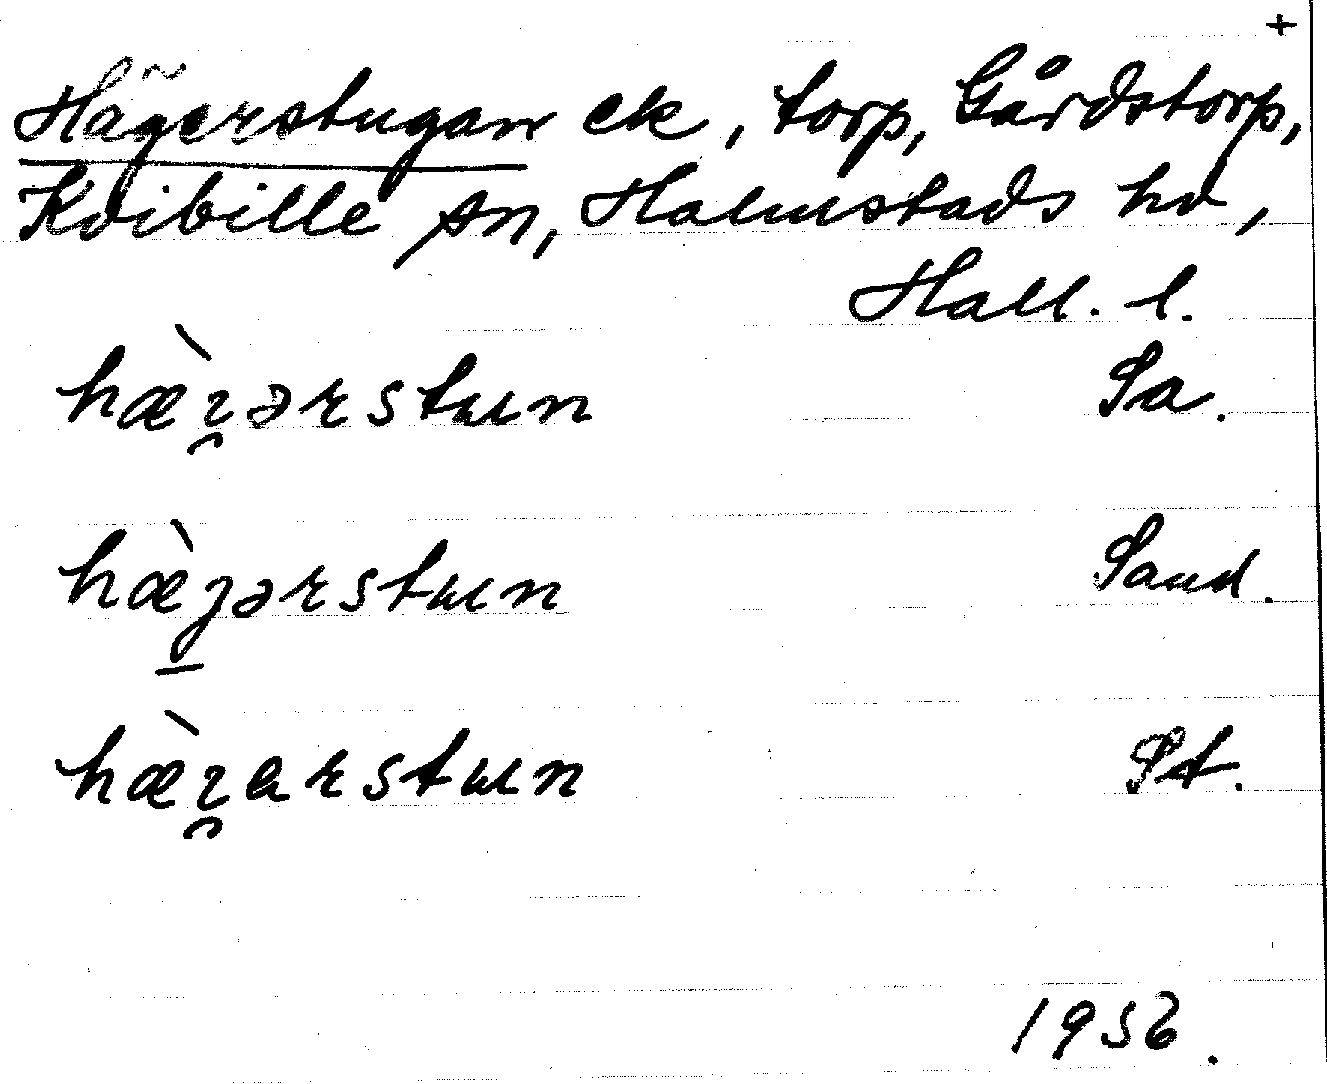 +
Hägerstugan ek, torp, Gårdstorp,
Kvibille sn, Halmstads hd,
Hall. l.
hæ̀ɿ̯ərstɯn Sa.
hæ̀ȷ̱ərstɯn Sand.
hæ̀ɿ̯arstɯn St.
1956.